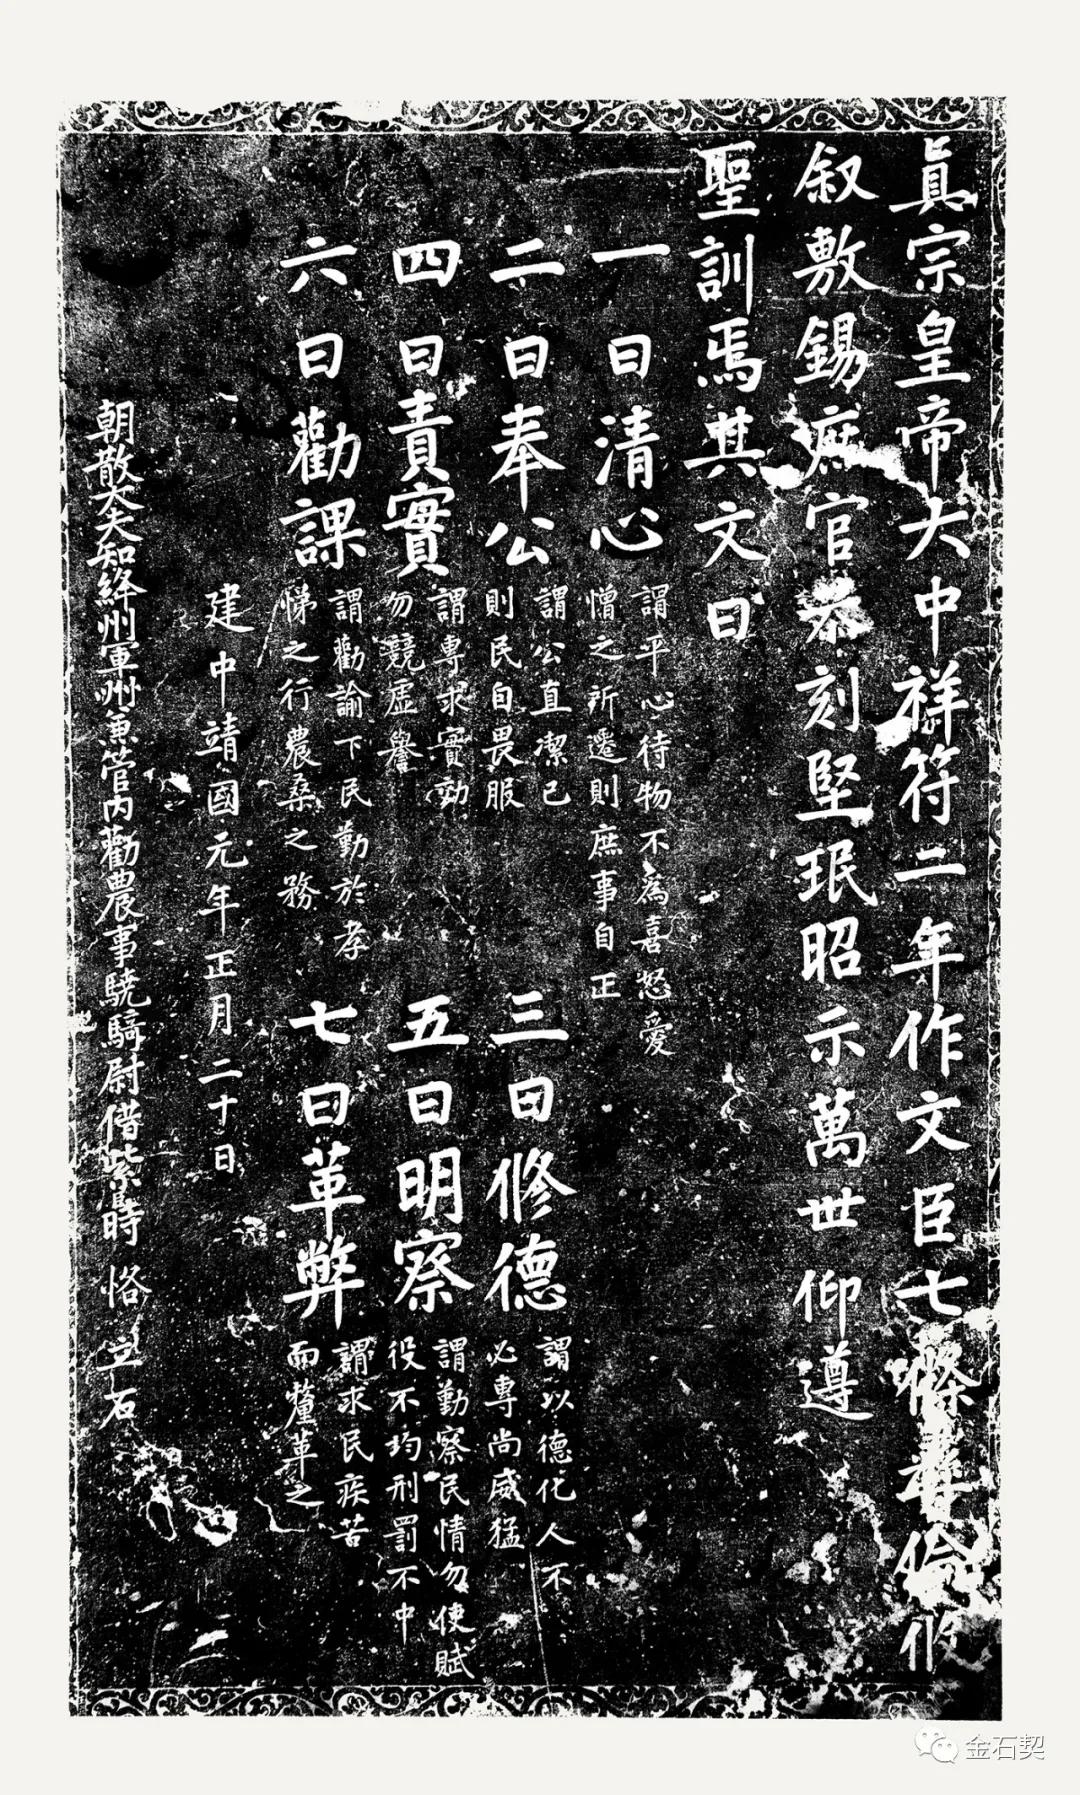 眞宗皇帝大中祥符二年作文臣七條彝倫攸
叙敷錫庶官恭刻堅珉昭示萬世仰遵
聖訓焉其文曰
一曰清心
謂平心待物不為喜怒愛
憎之所遷則庶事自正
二曰奉公
謂公直潔己
則民自畏服
三曰修德
謂以德化人不
必專尚威猛
四曰責實
謂專求實効
勿競虛譽
五曰明察
謂勤察民情勿使賦
役不均刑罰不中
六曰勸課
謂勸諭下民勤於孝
悌之行農桑之務
七曰革弊
謂求民疾苦
而釐革之
建中靖國元年正月二十日
朝散大夫知絳州軍州兼管內勸農事驍騎尉借紫時恪立石
金石契